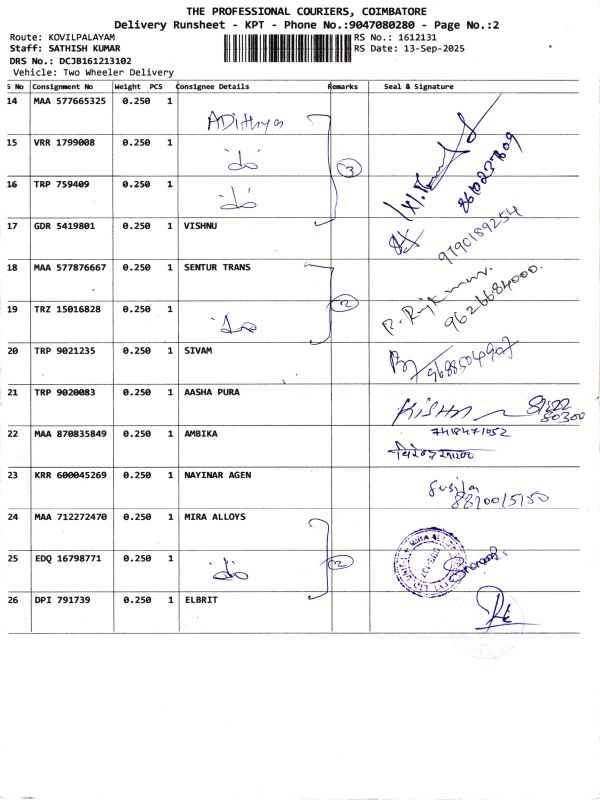 THE PROFESSIONAL COURIERS, COIMBATORE
Delivery Runsheet - KPT - Phone No.:9047080280 - Page No.:2
Route: KOVILPALAYAM RS No.: 1612131
Staff: SATHISH KUMAR RS Date: 13-Sep-2025
DRS No.: DCJB161213102
Vehicle: Two Wheeler Delivery
S No Consignment No Weight PCS Consignee Details Remarks Seal & Signature
14 MAA 577665325 0.250 1 ADithya
15 VRR 1799008 0.250 1 do 3
16 TRP 759409 0.250 1 do
17 GDR 5419801 0.250 1 VISHNU 9790189254
18 MAA 577876667 0.250 1 SENTUR TRANS
19 TRZ 15016828 0.250 1 do 2 9626684000
20 TRP 9021235 0.250 1 SIVAM 9688504907
21 TRP 9020083 0.250 1 AASHA PURA
22 MAA 870835849 0.250 1 AMBIKA 7418471052
23 KRR 600045269 0.250 1 NAYINAR AGEN
24 MAA 712272470 0.250 1 MIRA ALLOYS
25 EDQ 16798771 0.250 1 do 2
26 DPI 791739 0.250 1 ELBRIT